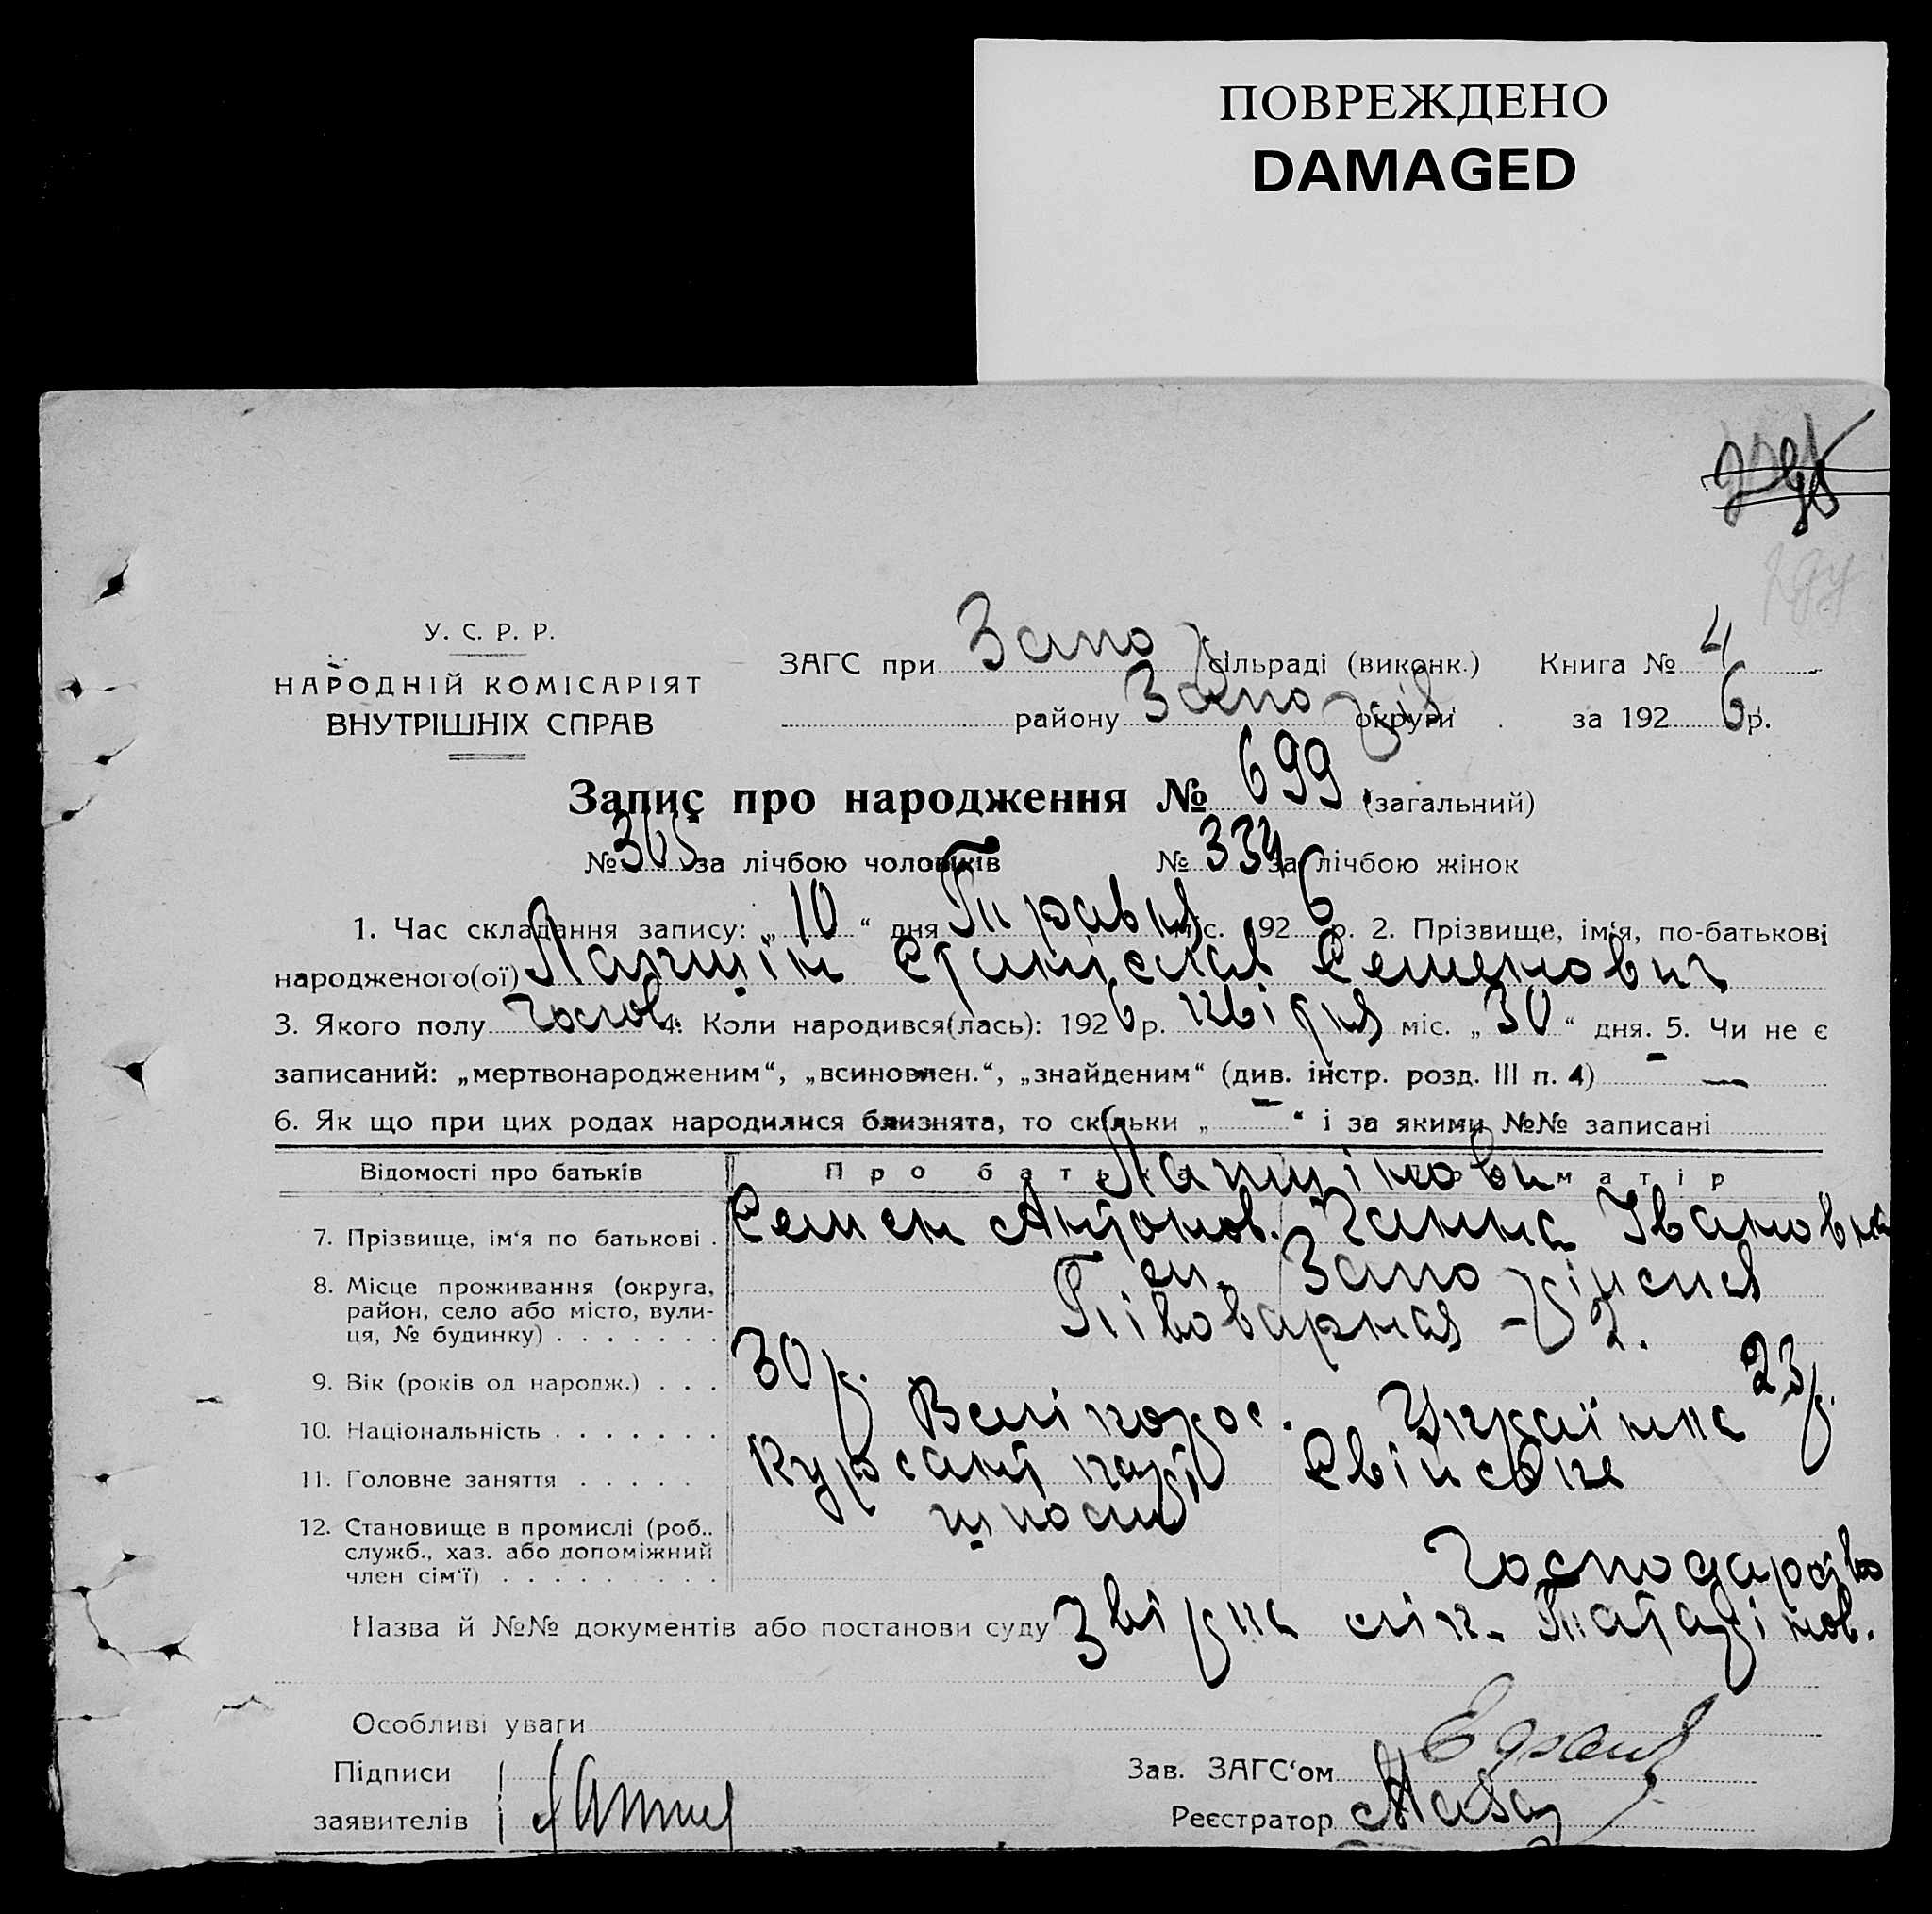 ПОВРЕЖДЕНО
DAMAGED
У. С. Р. Р.
НАРОДНІЙ КОМІСАРІЯТ
ВНУТРІШНІХ СПРАВ
ЗАГС при Запо сільраді (виконк.) Книга № 4
району Запо округи за 1926 р.
Запис про народження № 699 (загальний)
№ 365 за лічбою чоловіків № 334 за лічбою жінок
1. Час складання запису: „10“ дня Травня міс. 1926 р. 2. Прізвище, ім'я, по-батькові
народженого(ої) Лапшін Станіслав Семенович
3. Якого полу чолов. 4. Коли народився(лась): 1926 р. квітня міс. „30“ дня. 5. Чи не є
записаний: „мертвонародженим“, „всиновлен.“, „знайденим“ (див. інстр. розд. III п. 4) —
6. Як що при цих родах народилися близнята, то скільки „—“ і за якими №№ записані
Відомості про батьків Про батька матір
Лапшінови
7. Прізвище, ім'я по батькові . Семен Антонов. Ганна Івановна
8. Місце проживання (округа, район, село або місто, вулиця, № будинку) . . . . . . .
м. Запоріжжя
Півоварная - 2.
9. Вік (років од народж.) . . . 30 р. 23 р.
10. Національність . . . . . . . Велікорос. Українка
11. Головне заняття . . . . . Курсант парт Свійське
школи
12. Становище в промислі (роб.. служб., хаз. або допоміжний член сім'ї) . . . . . . . . .
Господарство
Назва й №№ документів або постанови суду Звірка лік.
Особливі уваги
Підписи
заявителів
Зав. ЗАГС'ом
Реєстратор